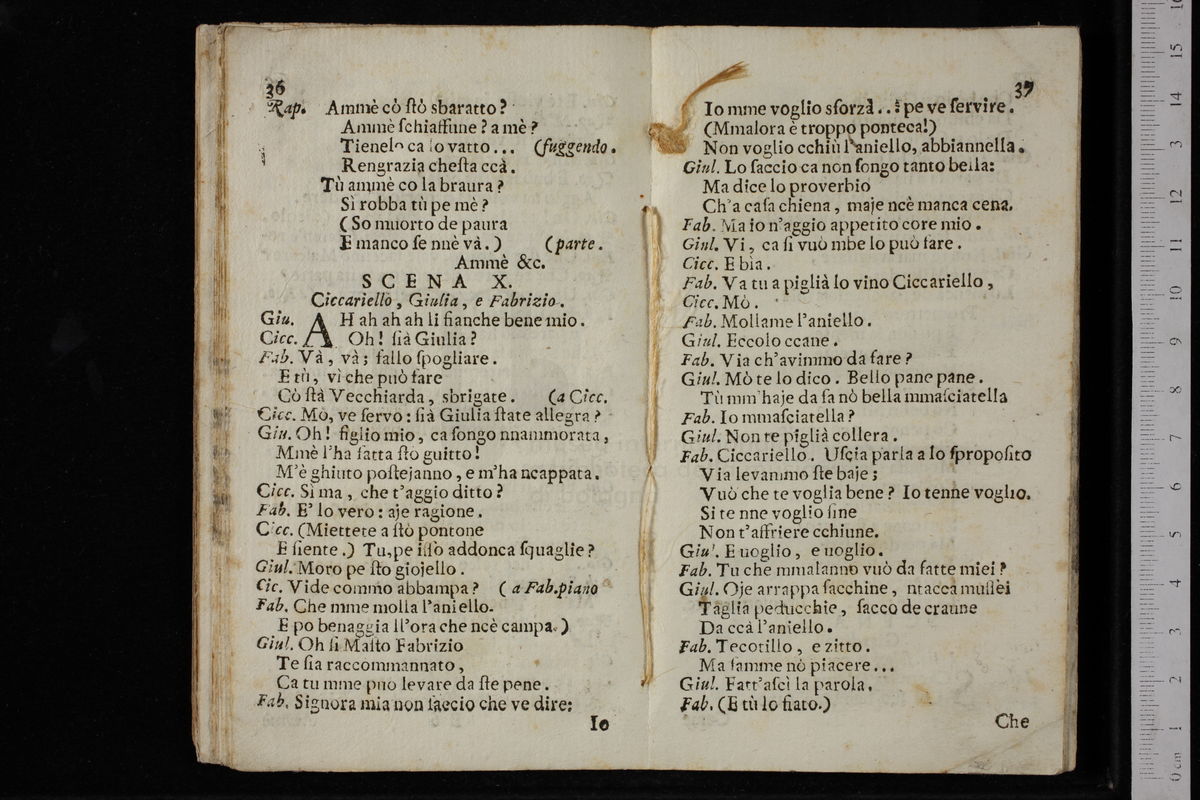 36
Rap. Ammè cò ſtò sbaratto?
Ammè ſchiaffune? a mè?
Tienelo ca lo vatto... (fuggendo.
Rengrazia cheſta ccà.
Tù ammè co la braura?
Sì robba tù pe mè?
(So muorto de paura
E manco ſe nnè và.) (parte.
Ammè &c.
SCENA X.
Ciccariello, Giulia, e Fabrizio.
Giu. AH ah ah ah li fianche bene mio.
Cicc. Oh! ſià Giulia?
Fab. Và, và; fallo ſpogliare.
E tù, vì che può fare
Cò ſtà Vecchiarda, sbrigate. (a Cicc.
Cicc. Mò, ve ſervo: ſià Giulia ſtate allegra?
Giu. Oh! figlio mio, ca ſongo nnammorata,
Mmè l'ha fatta ſto guitto!
M'è ghiuto poſtejanno, e m'ha ncappata.
Cicc. Sì ma, che t'aggio ditto?
Fab. E' lo vero: aje ragione.
Cicc. (Miettete a ſtò pontone
E ſiente.) Tu, pe iſſo addonca ſquaglie?
Giul. Moro pe ſto giojello.
Cic. Vide commo abbampa? (a Fab. piano
Fab. Che mme molla l'aniello.
E po benaggia ll'ora che ncè campa.)
Giul. Oh ſi Maſto Fabrizio
Te ſia raccommannato,
Ca tu mme può levare da ſte pene.
Fab. Signora mia non ſaccio che ve dire:
Io
37
Io mme voglio sforzà..: pe ve ſervire.
(Mmalora è troppo ponteca!)
Non voglio cchiù l'aniello, abbiannella.
Giul. Lo ſaccio ca non ſongo tanto bella:
Ma dice lo proverbio
Ch'a caſa chiena, maje ncè manca cena.
Fab. Ma io n'aggio appetito core mio.
Giul. Vi, ca ſi vuò mbe lo può fare.
Cicc. E bìa.
Fab. Va tu a piglià lo vino Ciccariello,
Cicc. Mò.
Fab. Mollame l'aniello.
Giul. Eccolo ccane.
Fab. Via ch'avimmo da fare?
Giul. Mò te lo dico. Bello pane pane.
Tù mm'haje da fa nò bella mmaſciatella
Fab. Io mmaſciatella?
Giul. Non te piglià collera.
Fab. Ciccariello. Uſcia parla a lo ſpropoſito
Via levammo ſte baje;
Vuò che te voglia bene? Io tenne voglio.
Si te nne voglio fine
Non t'affriere cchiune.
Giu'. E uoglio, e uoglio.
Fab. Tu che mmalanno vuò da fatte miei?
Giul. Oje arrappa facchine, ntacca muſſèi
Taglia peducchie, ſacco de craune
Da ccà l'aniello.
Fab. Tecotillo, e zitto.
Ma famme nò piacere...
Giul. Fatt'aſcì la parola.
Fab. (E tù lo fiato.)
Che